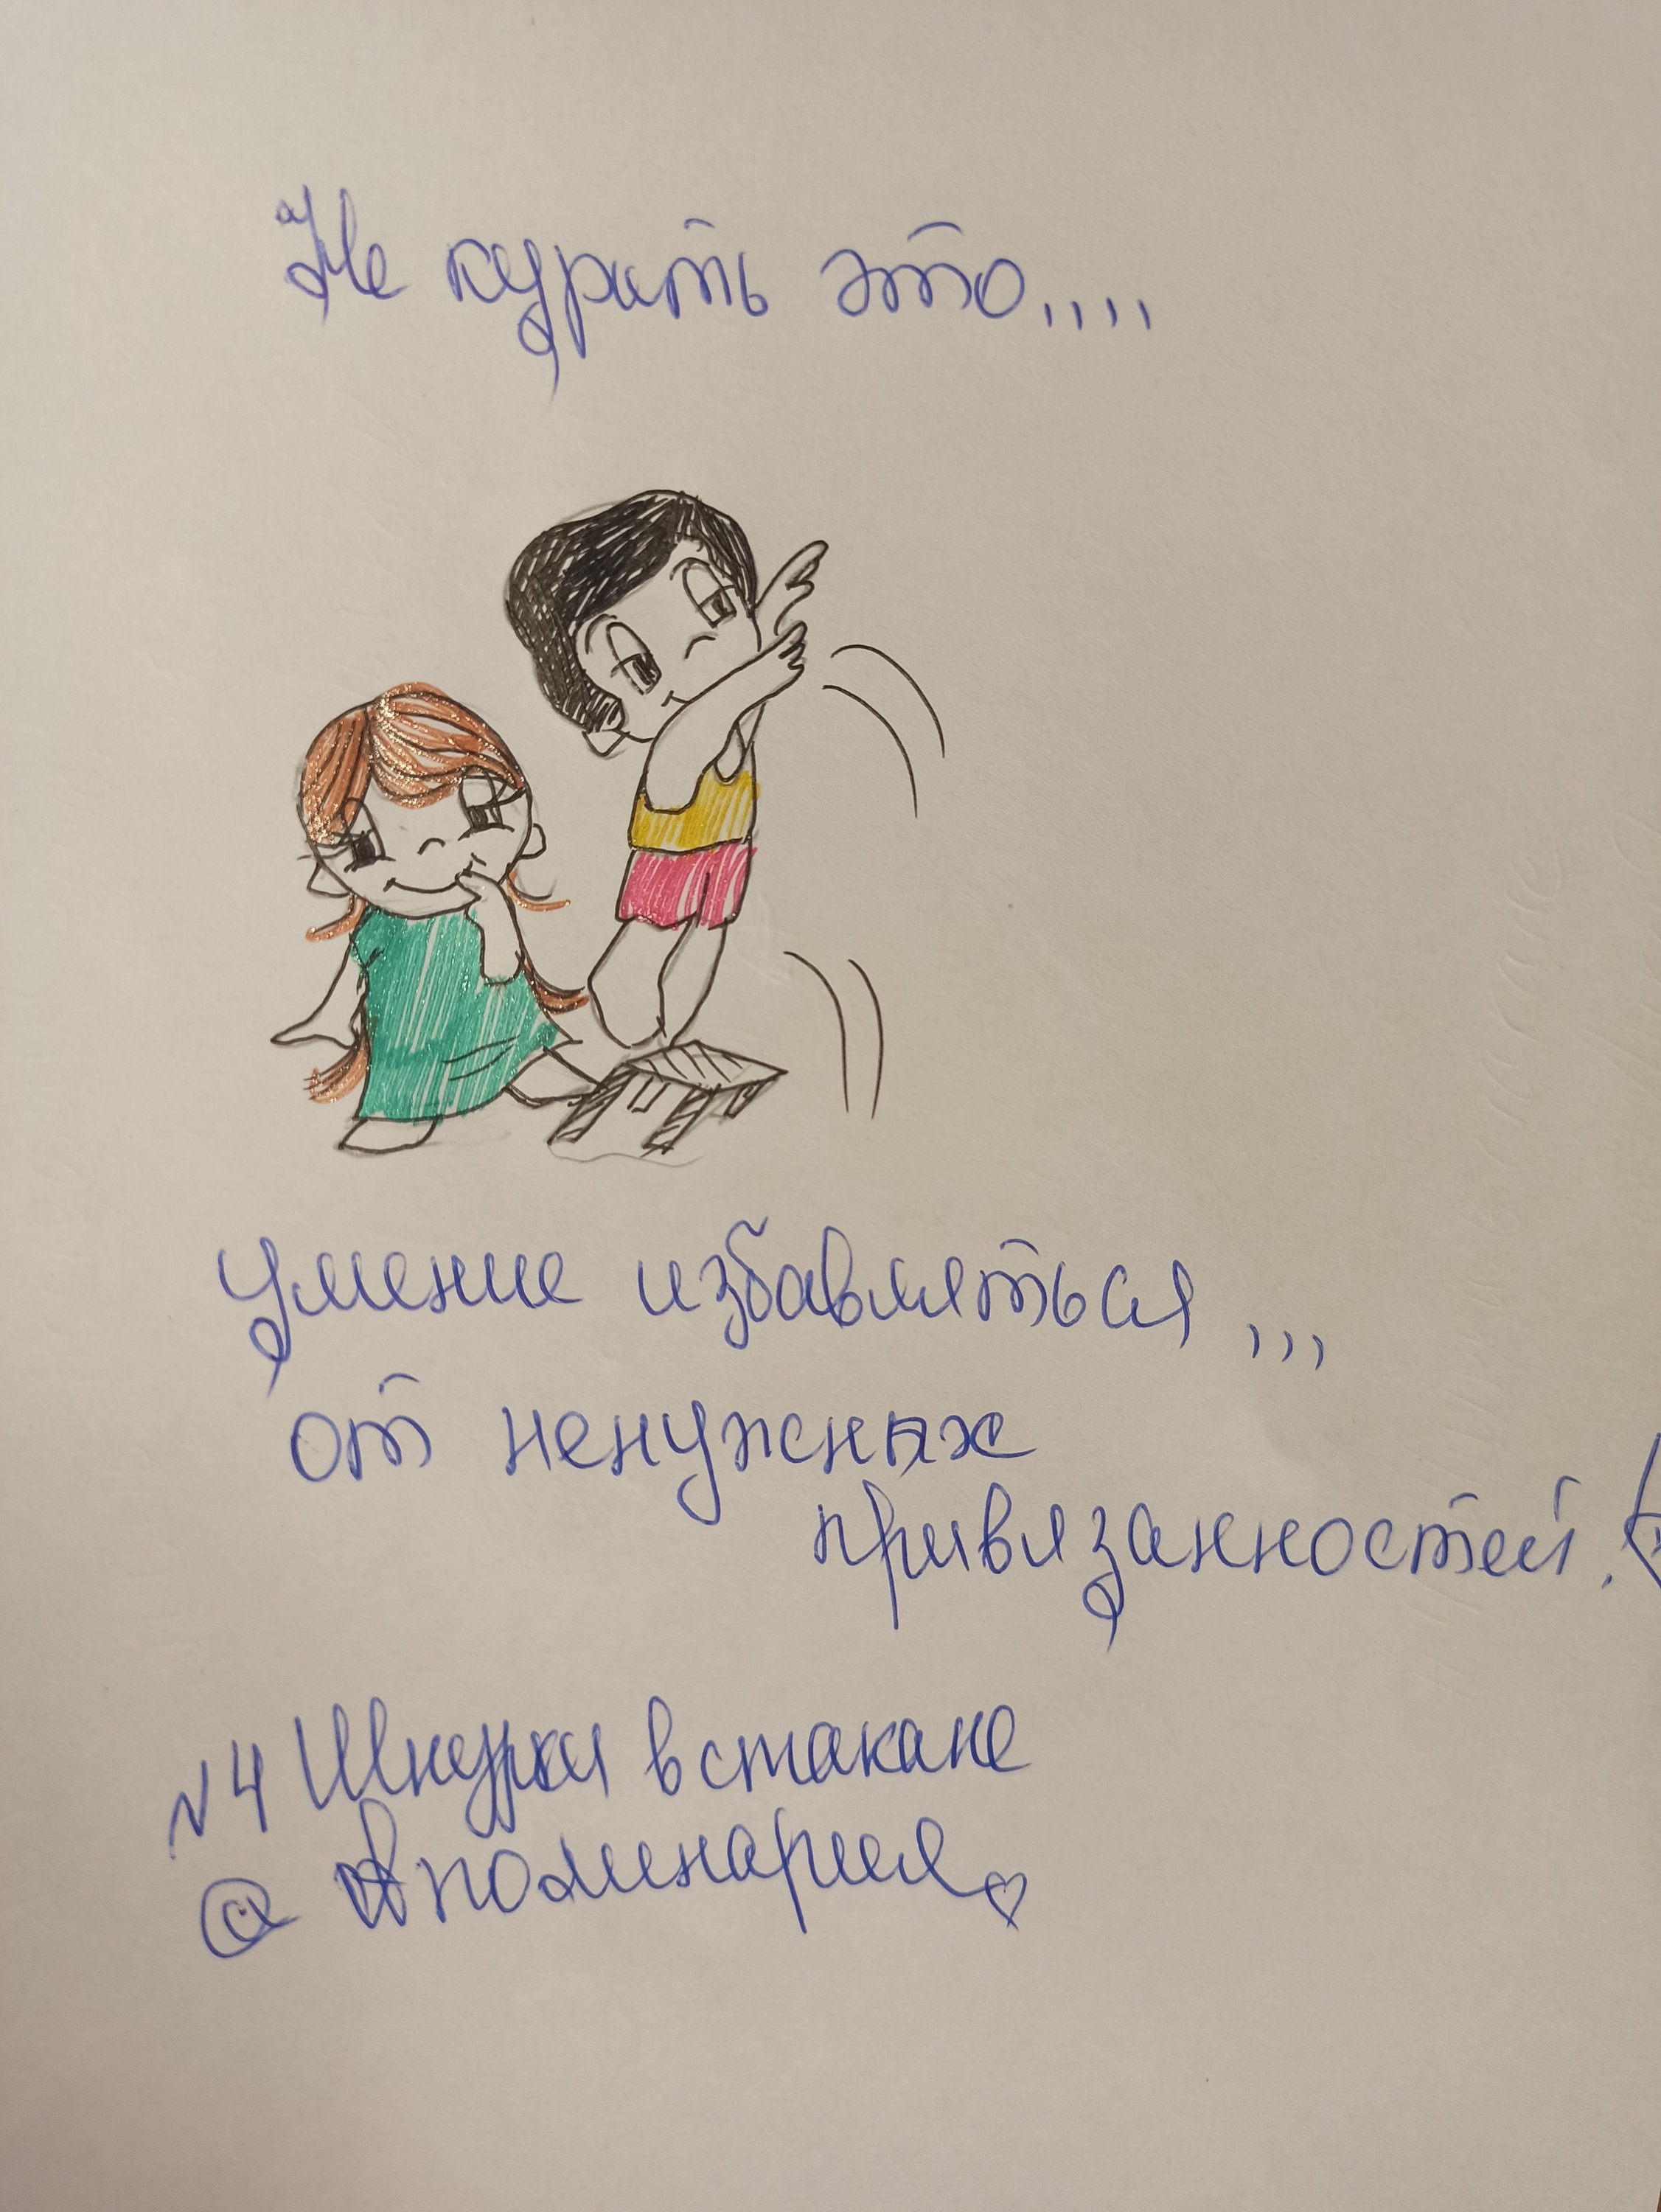 Не курить это....
умение избавляться...
от ненужных
привязанностей.
№4 Шнурки в стакане
@ Аполинария